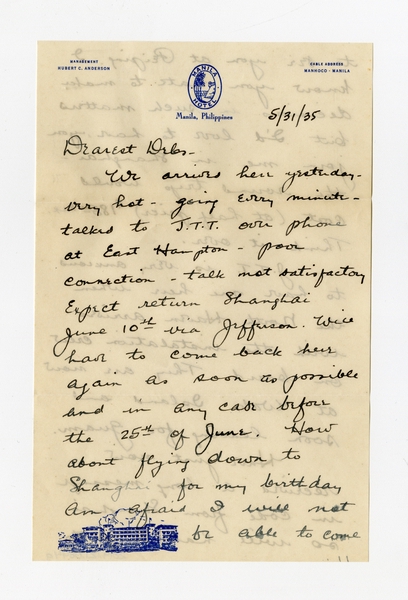 MANAGEMENT
HUBERT C. ANDERSON
MANILA
HOTEL
CABLE ADDRESS
MANHOCO - MANILA
Manila, Philippines
5/31/35
Dearest Debs -
We arrived here yesterday -
very hot - going every minute -
talked to J.T.T. over phone
at East Hampton - poor
connection - talk not satisfactory
Expect return Shanghai
June 10th via Jefferson. Will
have to come back here
again as soon as possible
and in any case before
the 25th of June. How
about flying down to
Shanghai for my birthday
Am afraid I will not
be able to come